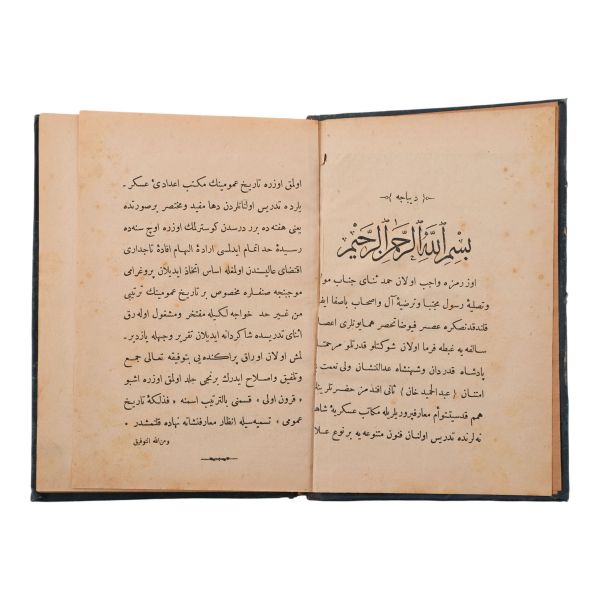 دیباجه
بسم الله الرحمن الرحیم
اوزرمزه واجب اولان حمد ثنای جناب مولا
وتصلیهٔ رسول مجتبا وترضیهٔ آل واصحاب باصفا ایفا
قلندقدنصکره عصر فیوضاتحصر همایونلری اعصار
سالفه یه غبطه فرما اولان شوکتلو قدرتلو مرحمتلو
پادشاه قدردان وشهنشاه عدالتنشان ولی نعمت
امتنان ﴿ عبدالحمید خان ﴾ ثانی افندمز حضرتلرینك
هم قدسیتشوأم معارفپروریلریله مکاتب عسکریهٔ شاهـ
نه لرنده تدریس اولنان فنون متنوعه یه برنوع علا
اولمق اوزره تاریخ عمومینك مکتب اعدادیٔ عسکر ـ
یلرده تدریس اولنانلردن دها مفید ومختصر برصورتده
یعنی هفته ده بر درسدن کوسترلمك اوزره اوچ سنه ده
رسیدهٔ حد اتمام ایدلسی ارادهٔ الهام افادهٔ تاجداری
اقتضای عالیسندن اولمغله اساس اتخاذ ایدیلان پروغرامی
موجبنجه صنفلره مخصوص بر تاریخ عمومینك ترتیبی
من غیر حد خواجه لکیله مفتخر ومشغول اوله رق
اثنای تدریسده شاکردانه ایدیلان تقریر وجهله یازدیر ـ
لمش اولان اوراق پراکنده یی بتوفیقه تعالی جمع
وتلفیق واصلاح ایدرك برنجی جلد اولمق اوزره اشبو
« قرون اولی » قسمنی بالترتیب اسمنه « فذلکهٔ تاریخ
عمومی » تسمیه سیله انظار معارفنشانه نهاده قلنمشدر .
ومن الله التوفیق